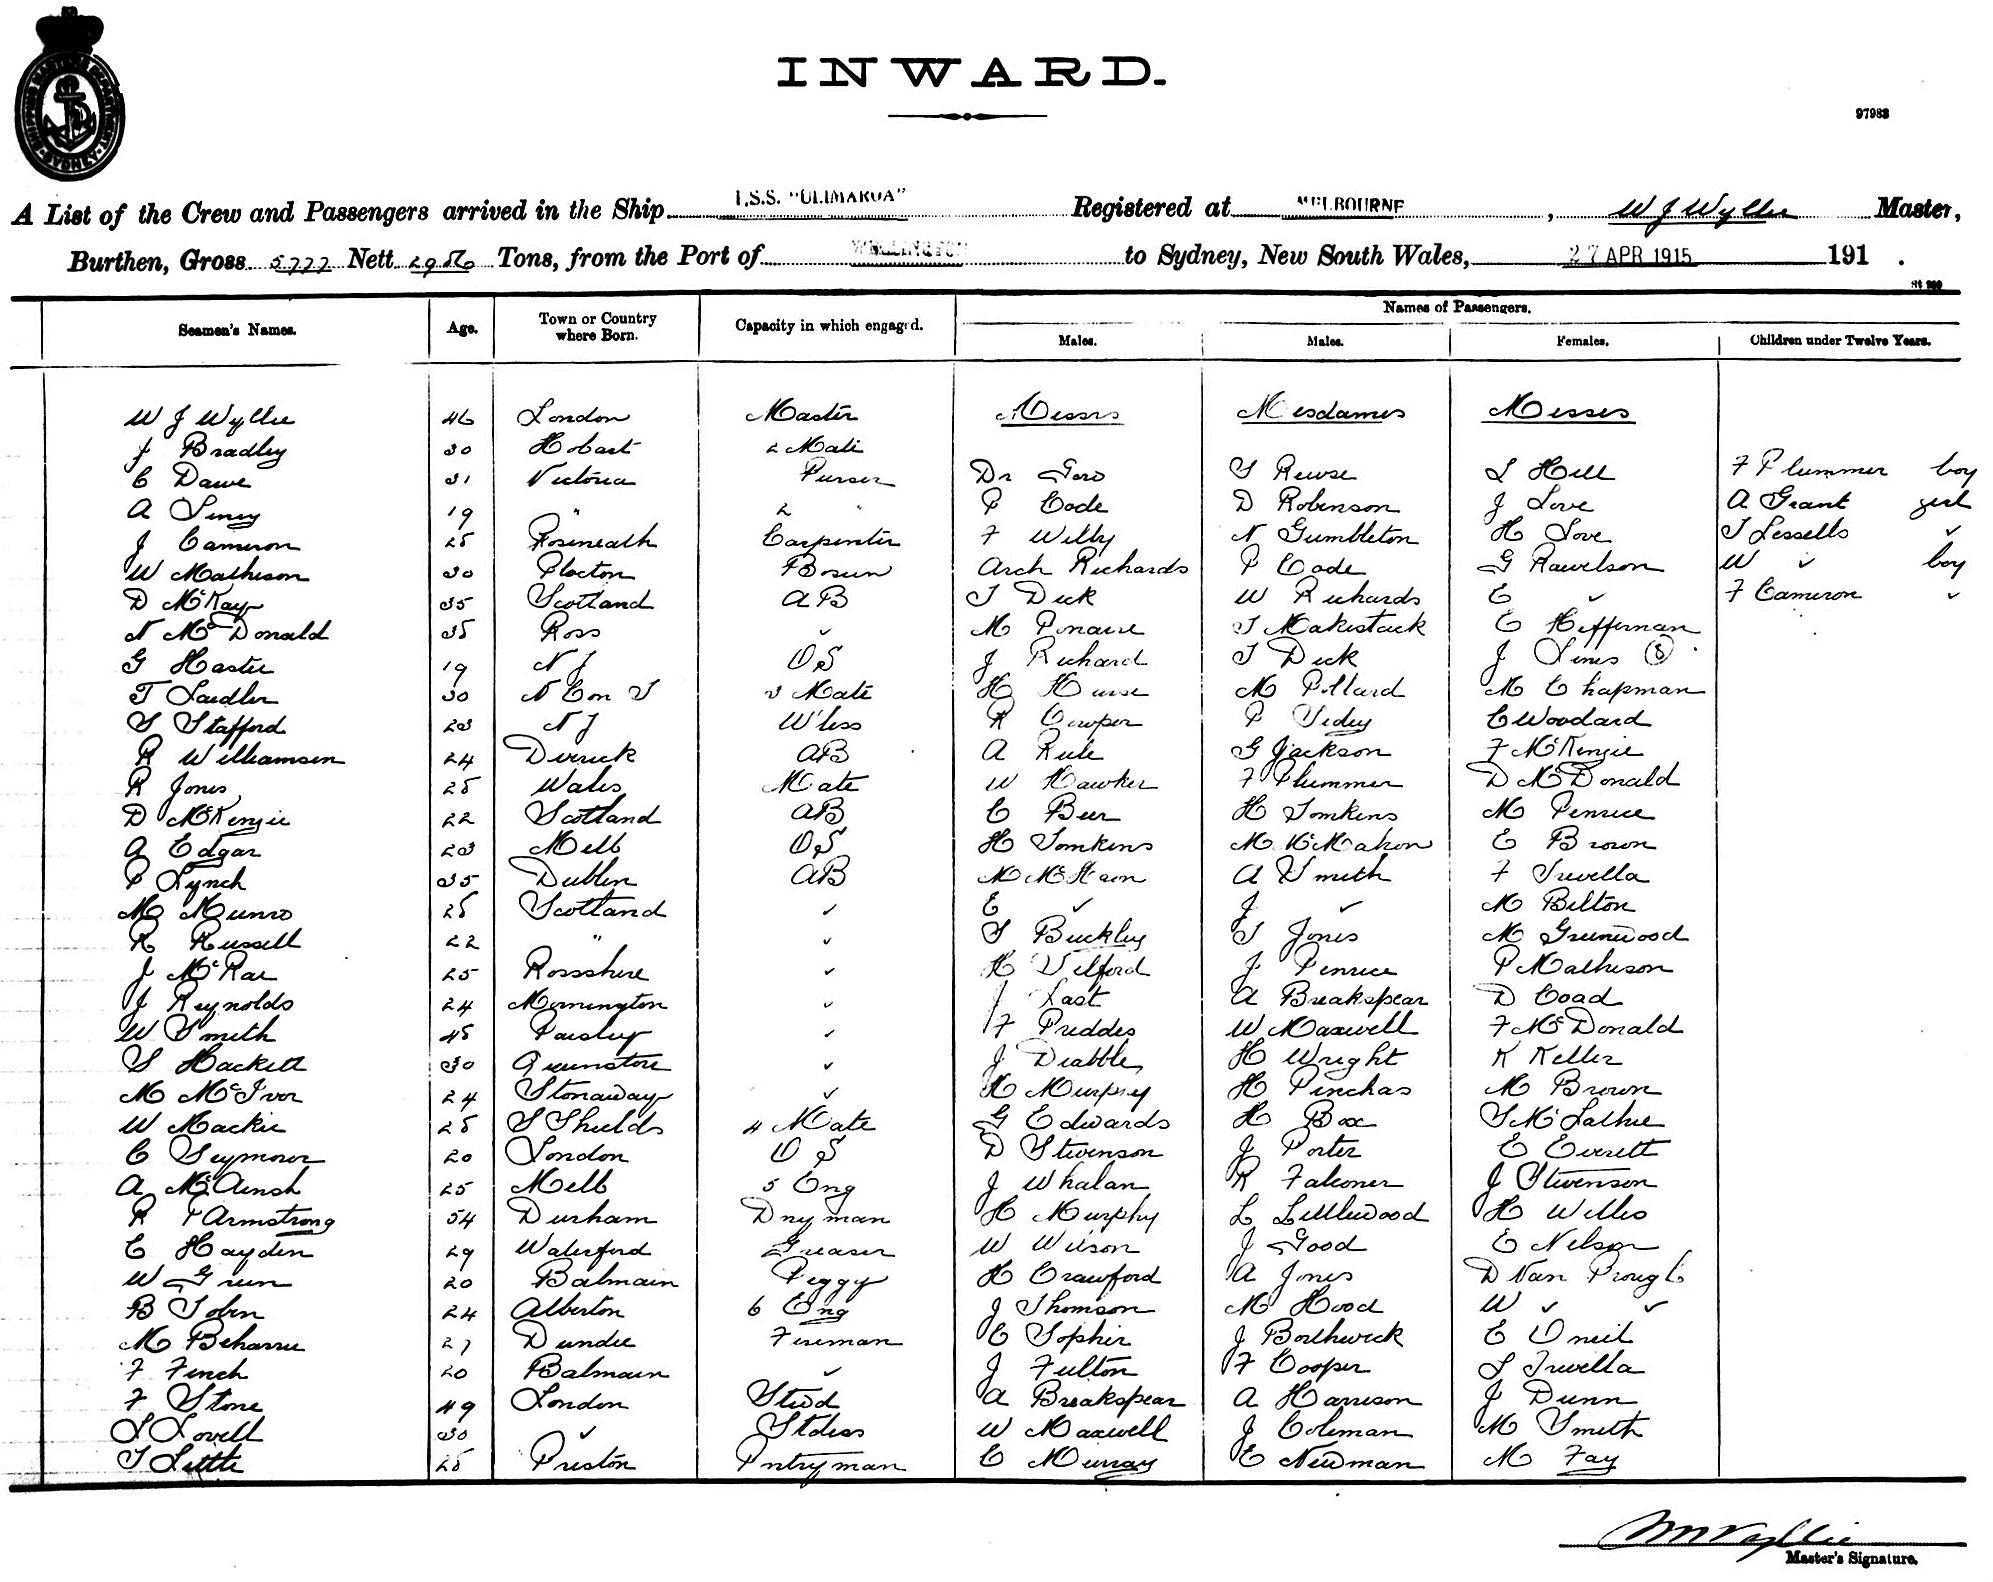 INWARD.
97983
A List of the Crew and Passengers arrived in the Ship T.S.S. "ULIMAROA" Registered at MELBOURNE, W J Wyllie Master,
Burthen, Gross 5777 Nett 2956 Tons, from the Port of WELLINGTON to Sydney, New South Wales, 27 APR 1915 191 .
Seamen's Names. Age. Town or Country where Born. Capacity in which engaged. Names of Passengers.
Males. Males. Females. Children under Twelve Years.
W J Wyllie 46 London Master Messrs Mesdames Misses
J Bradley 30 Hobart 2 Mate
C Dawe 31 Victoria Purser Dr Goro S Rewse L Hill F Plummer boy
A Liney 19 " 2 " P Code D Robinson J Love A Grant girl
J Cameron 25 Rosneath Carpenter F Willy N Gumbleton H Love T Lessells ✓
W Matheson 30 Plocton Bosun Arch Richards P Code G Rawelson W ✓ boy
D McKay 35 Scotland AB T Dick W Richards E ✓ F Cameron ✓
N McDonald 35 Ross ✓ M Penrice T Makestack E Heffernan
G Hastie 19 N Z OS J Richard T Dick J Lines (8)
T Laidler 30 N Con S 3 Mate H Hurse M Pollard M Chapman
S Stafford 23 N Z W'less R Cowper P Sidey E Woodard
R Williamson 24 Derrick AB A Rule G Jackson F McKenzie
R Jones 25 Wales Mate W Hawker F Plummer D McDonald
D McKenzie 22 Scotland AB C Beer H Tomkins M Penrice
A Edgar 23 Melb OS H Tomkins M McMahon E Brown
P Lynch 35 Dublin AB M A Smith F Trevella
M Munro 25 Scotland ✓ E ✓ J ✓ M Bilton
R Russell 22 " ✓ S Buckley T Jones M Greenwood
J McRae 25 Rossshire ✓ H Telford J Penrice P Matheson
J Reynolds 24 Mornington ✓ J Last A Breakspear D Coad
W Smith 45 Paisley ✓ F Preddes W Maxwell F McDonald
S Hackett 30 Queenstow ✓ J Drabble H Wright K Keller
M McIvor 24 Stonaway ✓ H Murphy H Pinchas M Brown
W Mackie 25 S Shields 4 Mate G Edwards H Box S McLathie
C Seymour 20 London OS D Stevenson J Porter E Everett
A McAinsh 25 Melb 5 Eng J Whalan R Falconer J Stevenson
R P Armstrong 54 Durham Dnyman H Murphy L Littlewood H Willis
C Hayden 29 Waterford Greaser W Wilson J Good E Nelson
W Green 20 Balmain Peggy H Crawford A Jones D Van Prough
B Tobin 24 Alberton 6 Eng J Thomson M Hood W ✓ ✓
M Beharrie 27 Dundee Fireman E Sophir J Borthwick E Oneil
F Finch 20 Balmain ✓ J Fulton F Cooper L Trevella
F Stone 49 London Stwd A Breakspear A Harrison J Dunn
L Lovell 30 ✓ Stdess W Maxwell J Coleman M Smith
T Little 25 Preston Pntryman C Murray E Newman M Fay
Master's Signature.